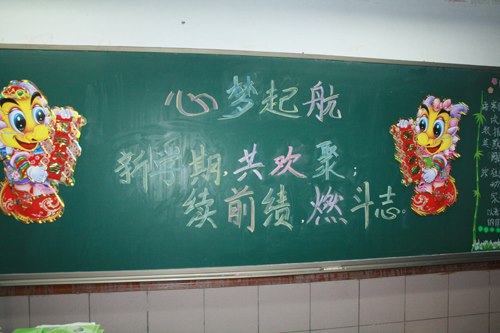 心梦起航
新学期，共欢聚；
续前绩，燃斗志。